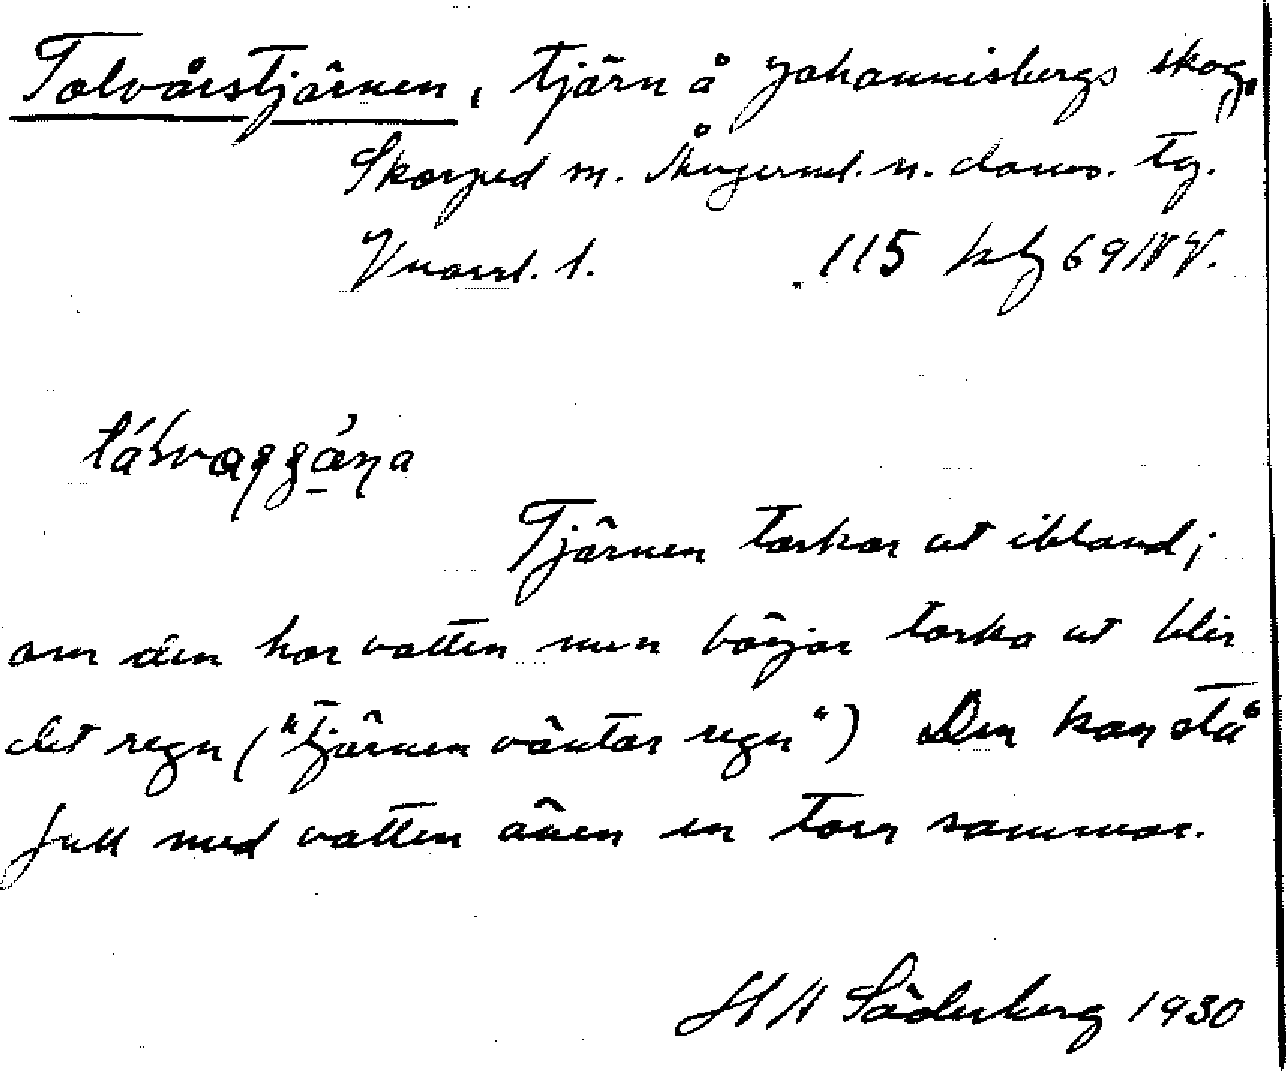 Tolvårstjärnen, tjärn å Johannisbergs skog,
Skorped sn. Ångerml. n. doms. tg.
Vnorrl. l. 115 kbl 69 NV.
Tjärnen torkar ut ibland;
om den har vatten men börjar torka ut blir
det regn ("tjärnen väntar regn") Den kan stå
full med vatten även en torr sommar.
H A Söderberg 1930